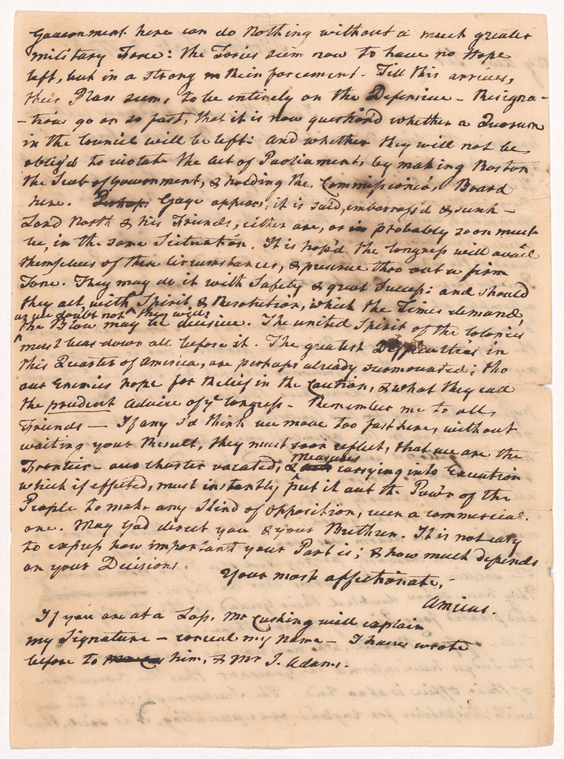 Government here can do nothing without a much greater
military Force: the Tories seem now to have no Hope
left, but in a strong Reinforcement. Till this arrives,
their Plan seems to be entirely on the Defensive – Resigna-
-tions go on so fast, that it is now question'd whether a Quorum
in the Council will be left: and whether they will not be
oblig'd to violate the Act of Parliament, by making Boston
the Seat of Government, & holding the Commissioners Board
here. Perhaps Gage appears, it is said, embarrass'd & sunk –
Lord North & his Friends, either are, or in probably soon must
be, in the same Situation. It is hop'd the Congress will avail
themselves of these Circumstances, & preserve thro out a firm
Tone. They may do it with Safety & great Success: and should
they act, with Spirit & Resolution, which the Times demand,
as we doubt not they will
the Blow may be decisive. The united Spirit of the Colonies
must bear down all before it. The greatest Difficulties in
this Quarter of America, are perhaps already surmounted; tho
our Enemies hope for Relief in the Caution, & what they call
the prudent Advice of ye Congress – Remember me to all
Friends – If any sd think we move too fast here, without
waiting your Result, they must soon reflect, that we are the
Frontier – our charter vacated, &
Measures
carrying into Execution
which if effected, must instantly put it out the Pow'r of the
People to make any Kind of Opposition, even a commercial
one. May God direct you & your Brethren. It is not easy
to express how important your Part is; & how much depends
on your Decisions.
Your most affectionate,
Amicus.
If you are at a Loss, Mr Cushing will explain
my Signature – conceal my Name – I have wrote
before to him, & Mr J. Adams.